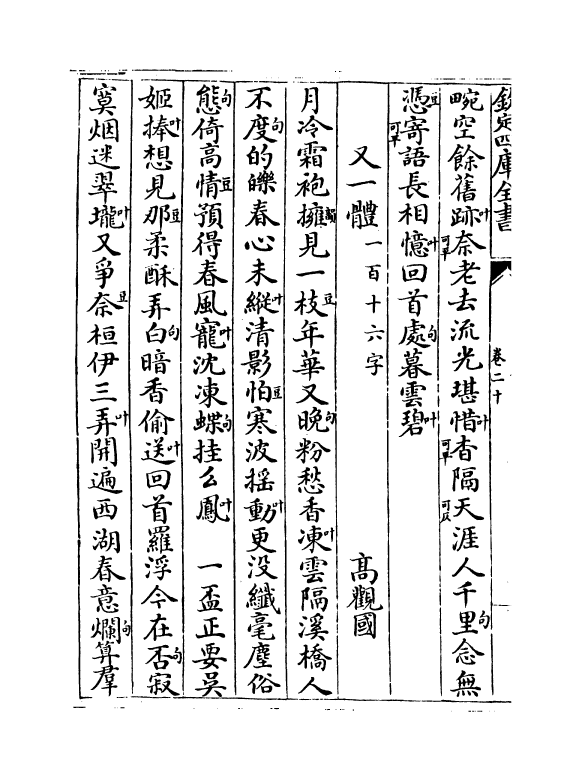 欽定四庫全書
卷二十
畹空餘舊跡叶奈老去流光堪惜叶杳隔天涯人千里句念無
憑豆寄語長相憶叶回首處句暮雲碧叶
又一體一百十六字 髙觀國
月冷霜袍擁韻見一枝豆年華又晚句粉愁香凍叶雲隔溪橋人
不度句的皪春心未縱叶清影怕豆寒波摇動叶更没纖毫塵俗
態句倚高情豆預得春風寵叶沈凍蝶句挂么鳳叶 一盃正要吴
姬捧叶想見那豆柔酥弄白句暗香偷送叶回首羅浮今在否句寂
寞烟迷翠壠叶又爭奈豆桓伊三弄叶開遍西湖春意爛句算羣